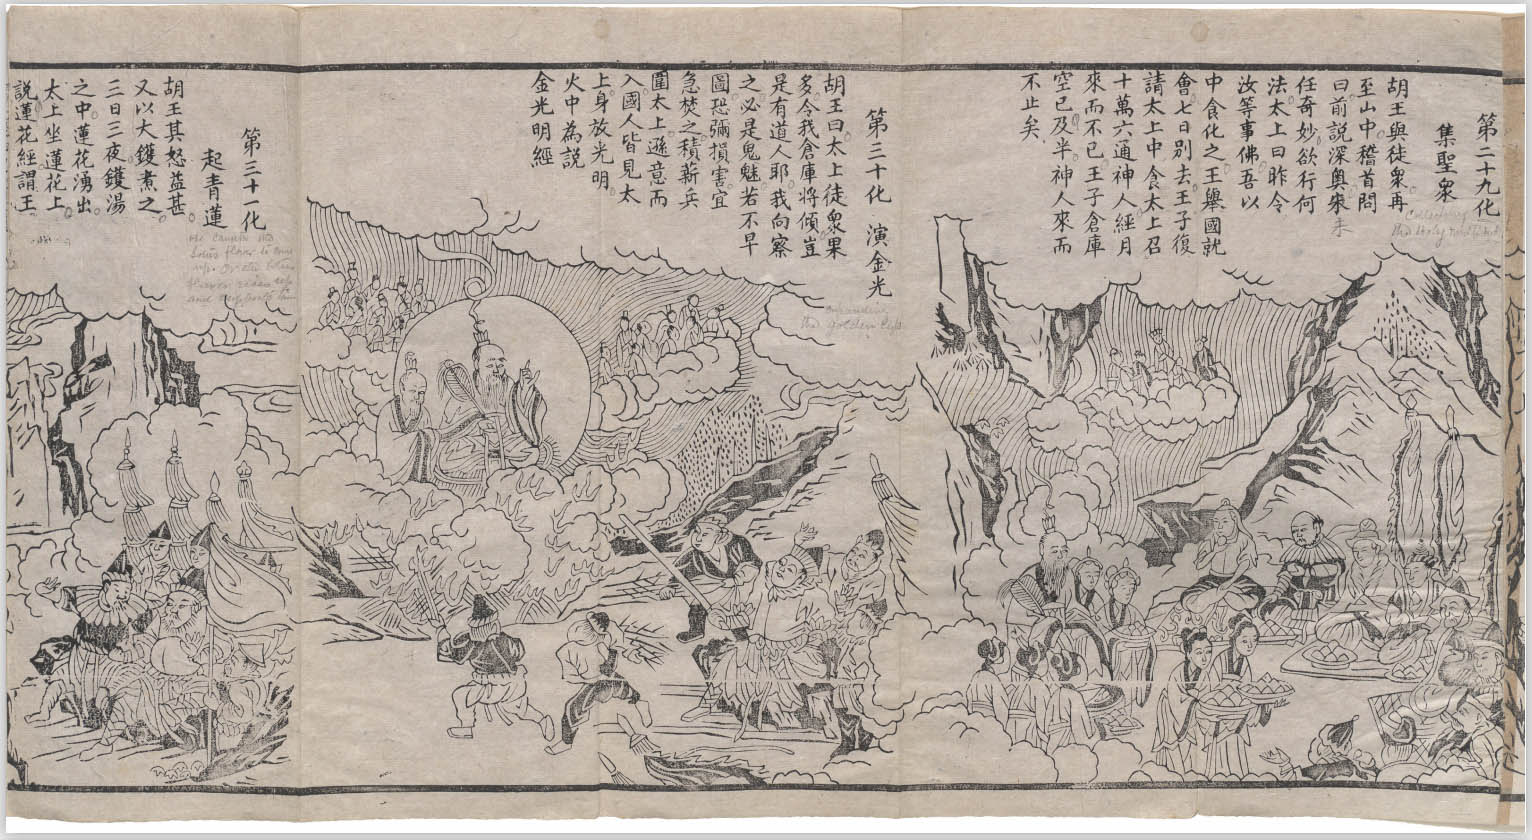 第二十九化
集聖衆
Collecting
the Holy multitude
胡王與徒衆再
至山中稽首問
曰前説深奥來
未
任奇妙欲行何
法太上曰昨令
汝等事佛吾以
中食化之王舉國就
會七日别去王子復
請太上中食太上召
十萬六通神人經月
來而不已王子倉庫
空已及半神人來而
不止矣
第三十化 演金光
the golden light
胡王曰太上徒衆果
多令我倉庫將傾豈
是有道人耶我向察
之必是鬼魅若不早
圖恐彌損害宜
急焚之積薪兵
圍太上遜意而
入國人皆見太
上身放光明
火中為説
金光明經
第三十一化
起青蓮
He causes the
Lotus flower to come
up. Or the
flower rises up
and supports him
胡王其怒益甚
又以大鑊煮之
三日三夜鑊湯
之中蓮花湧出
太上坐蓮花上
説蓮花經謂王